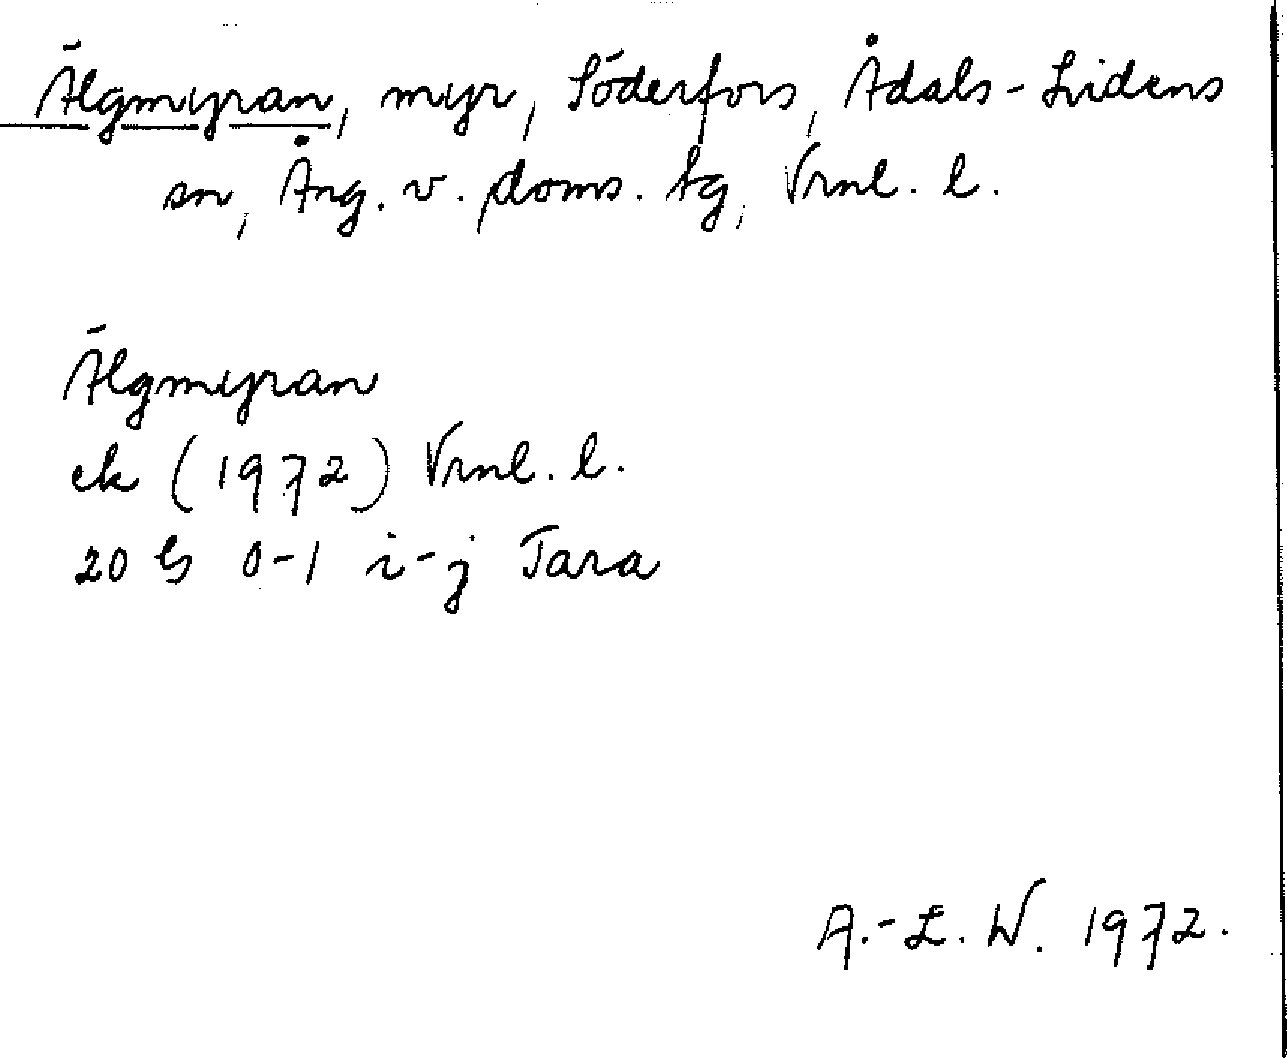 Älgmyran, myr, Söderfors, Ådals-Lidens
sn, Ång. v. doms. tg, Vrnl. l.
Älgmyran
ek (1972) Vrnl. l.
20 G 0-1 i-j Tara
A.-L. W. 1972.